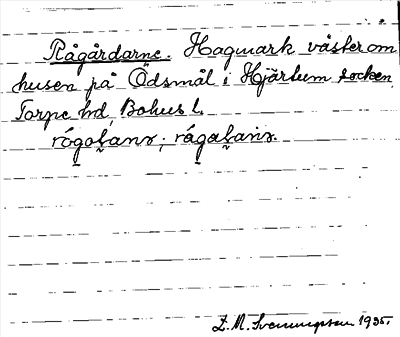 Rågårdarne. Hagmark väster om
husen på Ödsmål i Hjärtum socken
Torpe hd, Bohus l.
Z. M. Svenungsson 1935.